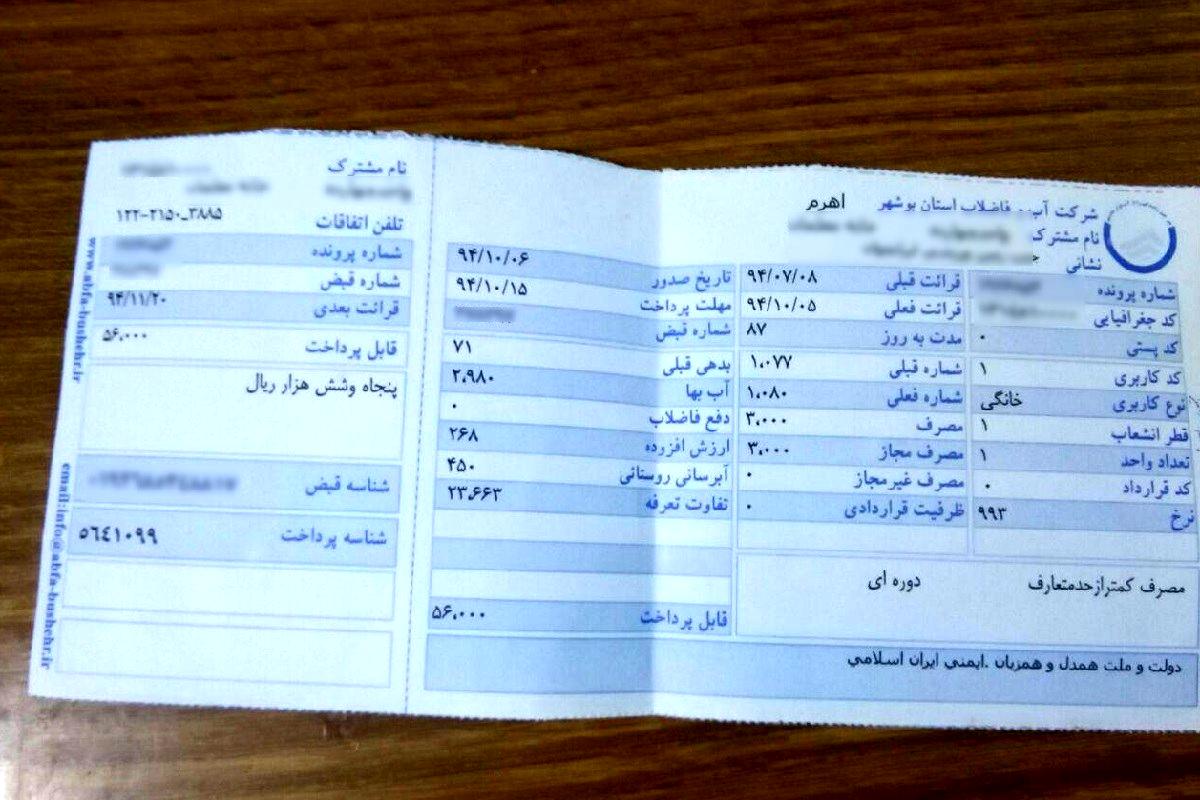 شرکت آب و فاضلاب استان بوشهر اهرم
نام مشترک
نشانی
شماره پرونده
کد جغرافیایی
کد پستی ۰
کد کاربری ۱
نوع کاربری خانگی
قطر انشعاب ۱
تعداد واحد ۱
کد قرارداد ۰
نرخ ۹۹۳
قرائت قبلی ۹۴/۰۷/۰۸
قرائت فعلی ۹۴/۱۰/۰۵
مدت به روز ۸۷
شماره قبلی ۱،۰۷۷
شماره فعلی ۱،۰۸۰
مصرف ۳،۰۰۰
مصرف مجاز ۳،۰۰۰
مصرف غیر مجاز ۰
ظرفیت قراردادی ۰
مصرف کمتر از حد متعارف دوره ای
تاریخ صدور ۹۴/۱۰/۰۶
مهلت پرداخت ۹۴/۱۰/۱۵
شماره قبض
بدهی قبلی ۷۱
آب بها ۲،۹۸۰
دفع فاضلاب ۰
ارزش افزوده ۲۶۸
آبرسانی روستائی ۴۵۰
تفاوت تعرفه ۲۳،۶۶۳
قابل پرداخت ۵۶،۰۰۰
دولت و ملت همدل و همزبان .ایمنی ایران اسلامی
نام مشترک
تلفن اتفاقات ۱۲۲-۲۱۵۰_۳۸۸۵
شماره پرونده
شماره قبض
قرائت بعدی ۹۴/۱۱/۲۰
قابل پرداخت ۵۶،۰۰۰
پنجاه وشش هزار ریال
شناسه قبض
شناسه پرداخت ٥٦٤١٠٩٩
www.abfa-bushehr.ir
email:info@abfa-bushehr.ir